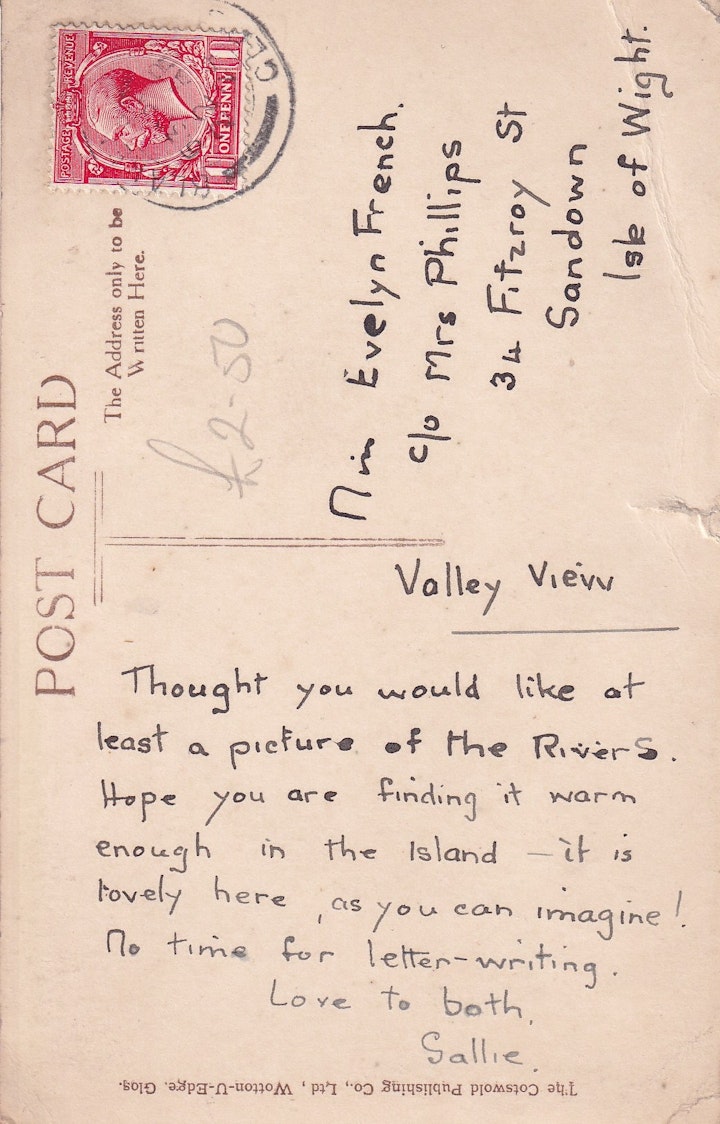 POST CARD
The Address only to be
Written Here.
POSTAGE REVENUE
ONE PENNY
£2-50
Miss Evelyn French.
c/o Mrs Phillips
34 Fitzroy St
Sandown
Isle of Wight.
Valley View
Thought you would like at
least a picture of the Rivers.
Hope you are finding it warm
enough in the Island – it is
lovely here, as you can imagine!
No time for letter-writing.
Love to both,
Sallie.
The Cotswold Publishing Co., Ltd, Wotton-U-Edge. Glos.